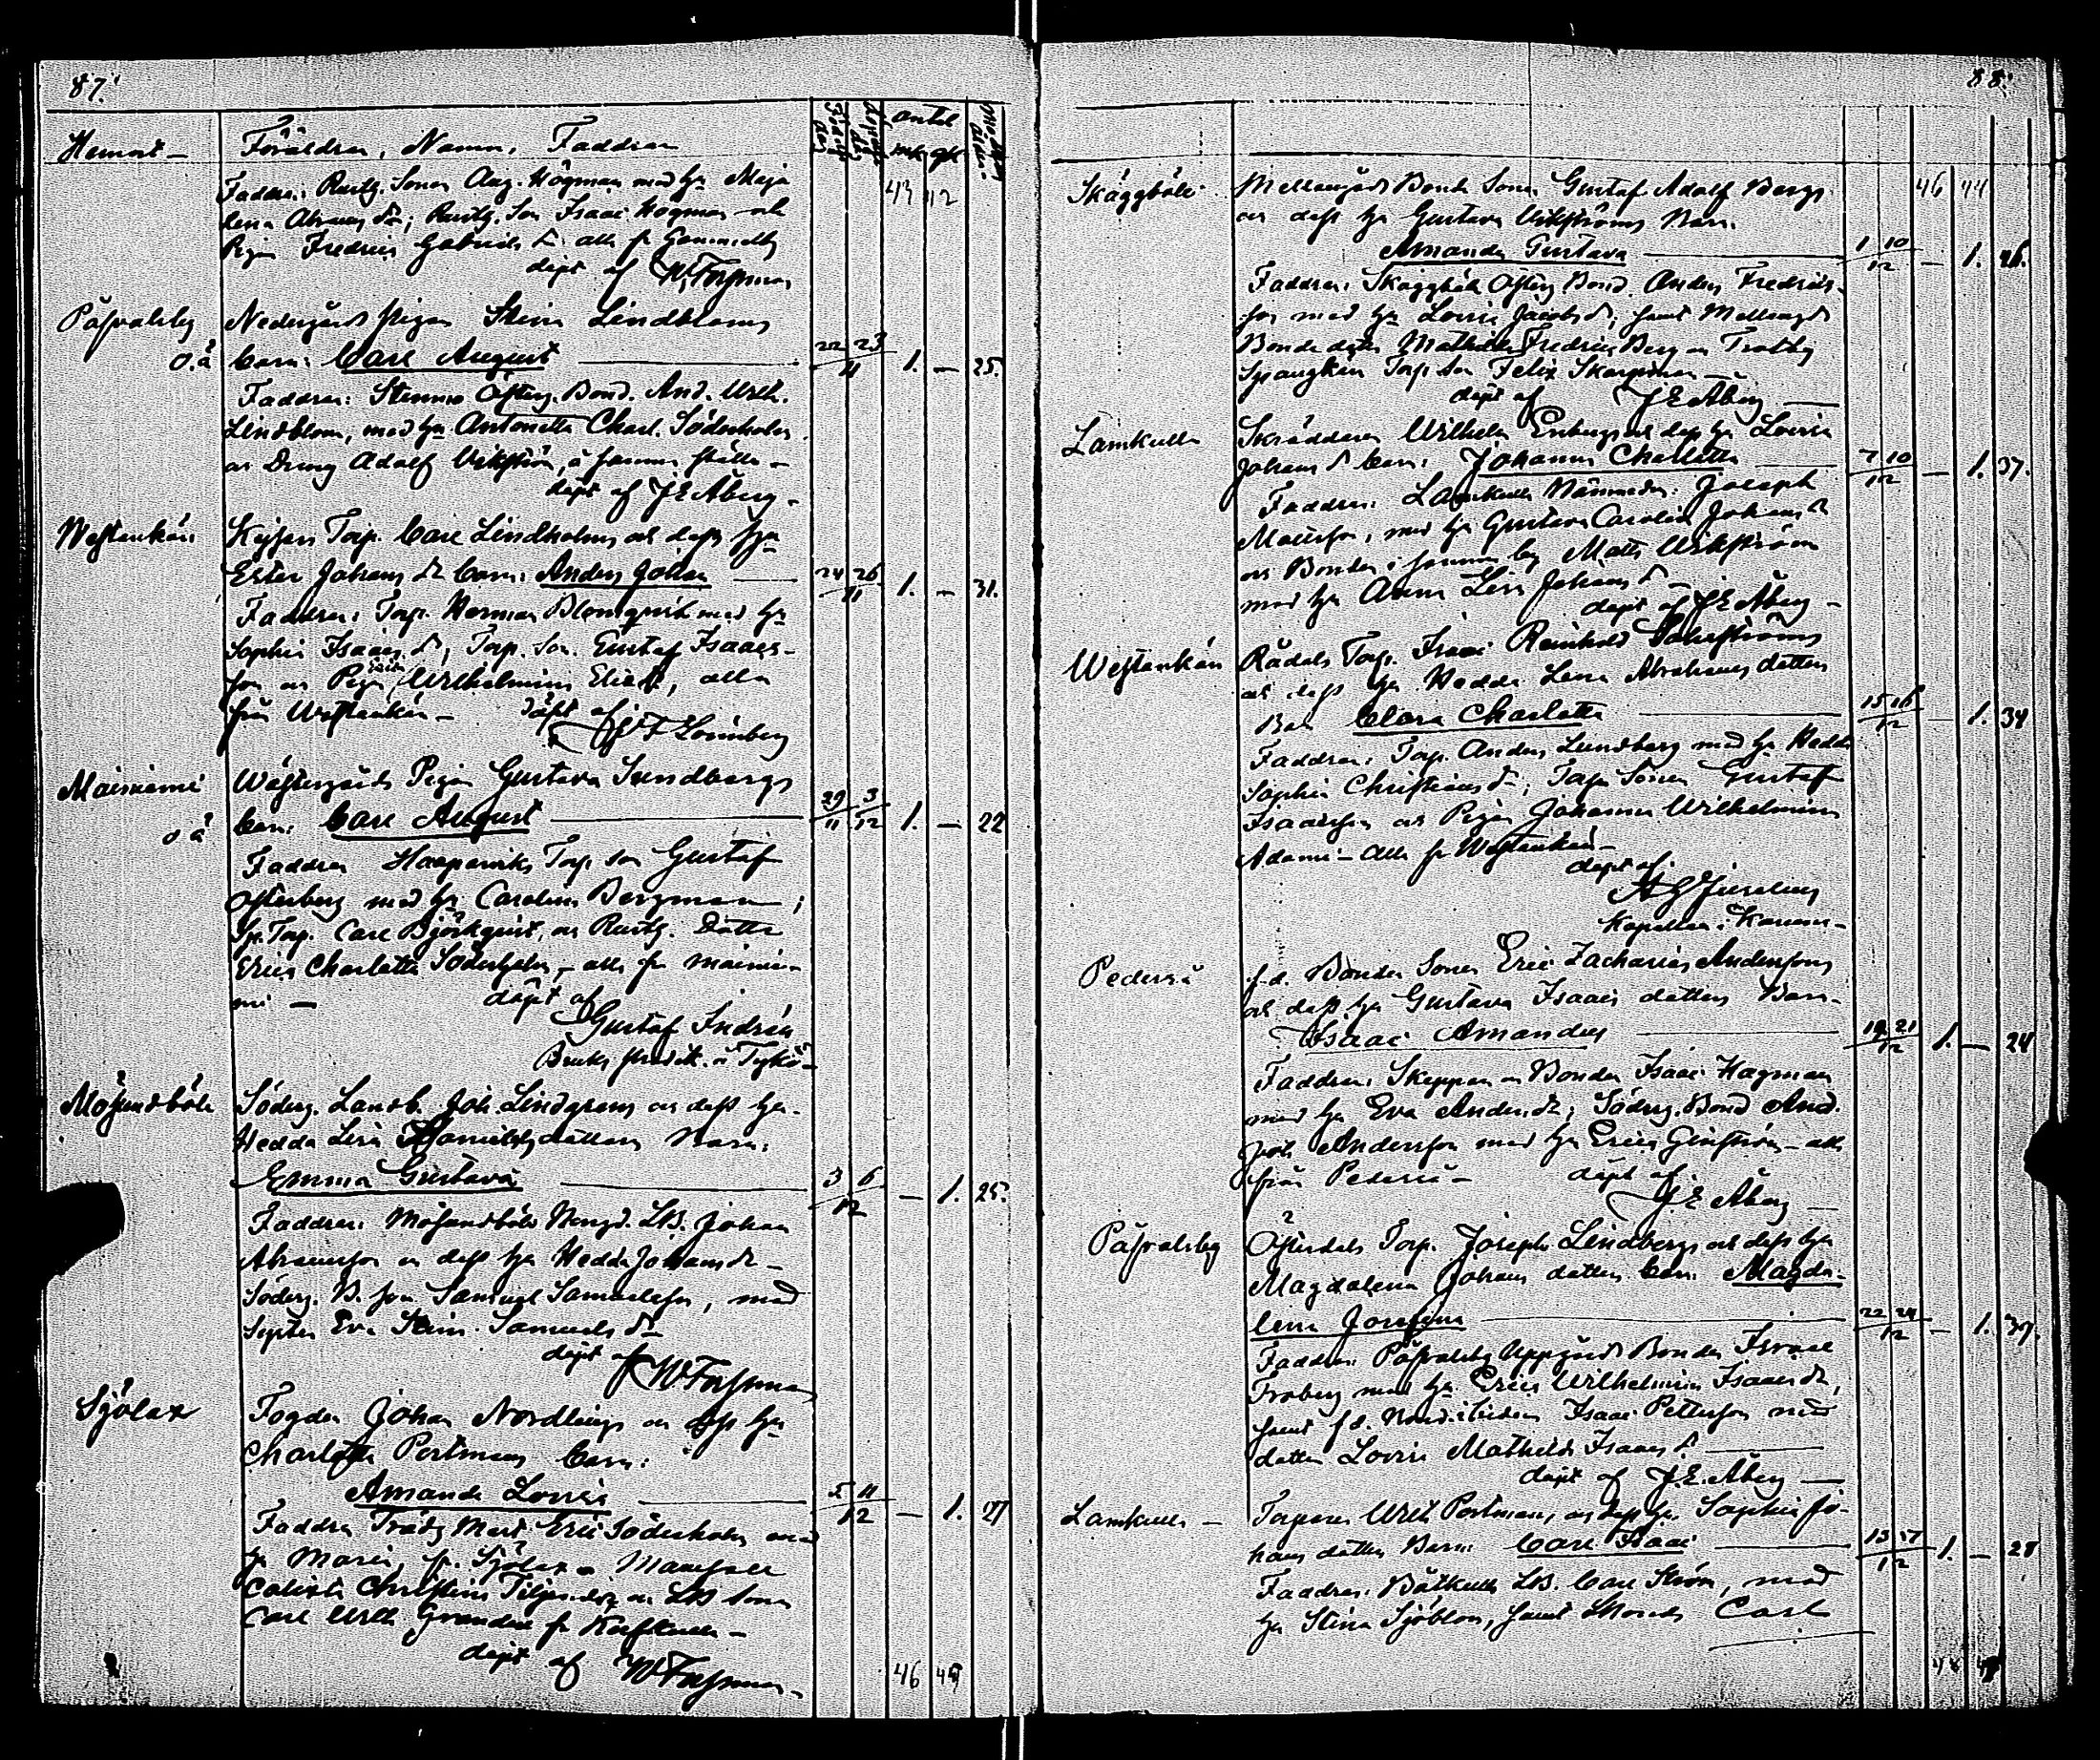 87.
Hemort – Föräldrar, Namn, Faddrar
antal
mk qk
Faddrar: Rustg. Sonen Aug. Högman med hu Maja
43 42
Lena Abrams dr; Rustg. Son Isaac Högman och
Pigan Fredrica Gabriels dr alla fr Gammelby
döpt af W. Forsman
Påfvalsby Nedergårds pigan Stina Lindbloms
o.ä barn: Carl August 22 23 / 11 1. – 25.
Faddrar: Stenmo Österg. Bond. And. Wilh.
Lindblom, med hu Antonetta Charl. Söderholm
och Dreng Adolf Wikström, å samma ställe –
döpt af J E Åberg –
Westankärr Torp. Carl Lindholms och dess hu
Ester Johans dr barn: Anders Johan 24 26 / 11 1. – 31.
Faddrar: Torp. Herman Blomqvist med hu
Sophia Isaacs dr, Torp. Son. Gustaf Isaacs-
son och Pigan Wilhelmina Elie dr, alla
från Westankärr – döpt af
Lönnberg
Mainiemi Westergårds Pigan Gustava Sundbergs
o ä barn: Carl August 29/11 3/12 1. – 22
Faddrar Haapaniks Torp son Gustaf
Österberg med hu Carolina Bergman;
Sp. Torp. Carl Björkqvist, och Rustg. Dotter
Erica Charlotta Söderholm, – alla fr Mainie-
mi – döpt af
Gustaf Indrén
Bruks predik. i Tykö –
Mösundböle Söderg. Landb. Joh. Lindgrens och dess hu.
Hedda Lisa dottern Barn:
Emma Gustava 3 6 / 12 – 1. 25.
Faddrar: Mösundböle LB. Johan
Abramsson och dess hu Hedda Johansdr –
Söderg. B. son Samuel Samuelsson, med
Syster Eva Stina Samuels dr
döpt af W Forsman
Sjölax Fogden Johan Nordlings och dess hu
Charlotta Portmans barn:
Amanda Lovisa 5 11 / 12 – 1. 27
Faddrar Trädg. Mäst. Eric Söderholm med
hu Maria, fr. Sjölax, Mamsell
Christina och LB Sonen
Carl Wilh Grandell fr
döpt af W Forsman –
46 45
88.
Skäggböle Mellangårds Bonde Sonen Gustaf Adolf Bergs 46 44
och dess hu Gustava Wikströms Barn.
Amanda Gustava 1 10 / 12 – 1. 26.
Faddrar: Skäggböle Österg Bond. Anders Fredriks-
son med hu Lovisa Jacobs dr; samt Mellangds
Bonde dotter Mathilda Fredrica Berg och Trotby
Spangkärr Torp son Felix Skarpman –
döpt af J E Åberg –
Lamkulla Skräddaren Wilhelm Enbergs och dess hu Lovisa
Johans dr barn: Johanna Charlotta 7 10 / 12 – 1. 37.
Faddrar: Lamkulla Joseph
Matsson, med hu Gustava Carolina Johans dr
och Bonden i samma by Matts Wikström
med hu Anna Lisa Johans dr –
döpt af J E Åberg –
Westankärr Rådals Torp. Isaac Reinhold
och dess hu Hedda Lena Abrahams dotter
Bar Clara Charlotta 15 16 / 12 – 1. 34
Faddrar: Torp. Anders Lundberg med hu Hedda
Sophia Christians dr; Torp. Sonen Gustaf
Isaacsson och Pigan Johanna Wilhelmina
Adami – alla fr Westankärr –
döpt af
Kapellan i Karuna –
Pederså f.d. Bonden Sonen Eric Zacharias Anderssons
och dess hu Gustava Isaacs dotters Barn –
Isaac Amandus 19 21 / 12 1. – 24
Faddrar: Skepparen Bonden Isaac Hagman
med hu Eva Anders dr; Söderg. Bond And.
Joh Andersson med hu Erica – alla
från Pederså – döpt af
J. E Åberg –
Påfvalsby Österdals Torp. Joseph Lindbergs och dess hu
Magdalena Johans dotters barn: Magda-
lena Josefina 22 24 / 12 – 1. 37.
Faddrar: Påfvalsby Uppgårds Bonden Israel
Froberg med hu Erica Wilhelmina Isaacs dr,
samt f.d. Isaac Pettersson med
dotter Lovisa Mathilda Isaacs dr
döpt af J. E. Åberg –
Lamkulla – Torparen Wilh Portmans, och dess hu. Sophia Jo-
hans dotters Barn: Carl Isaac 13 17 / 12 1. – 28
Faddrar: Båtkulla LB. Carl Ström, med
hu Stina Sjöblom, samt Carl